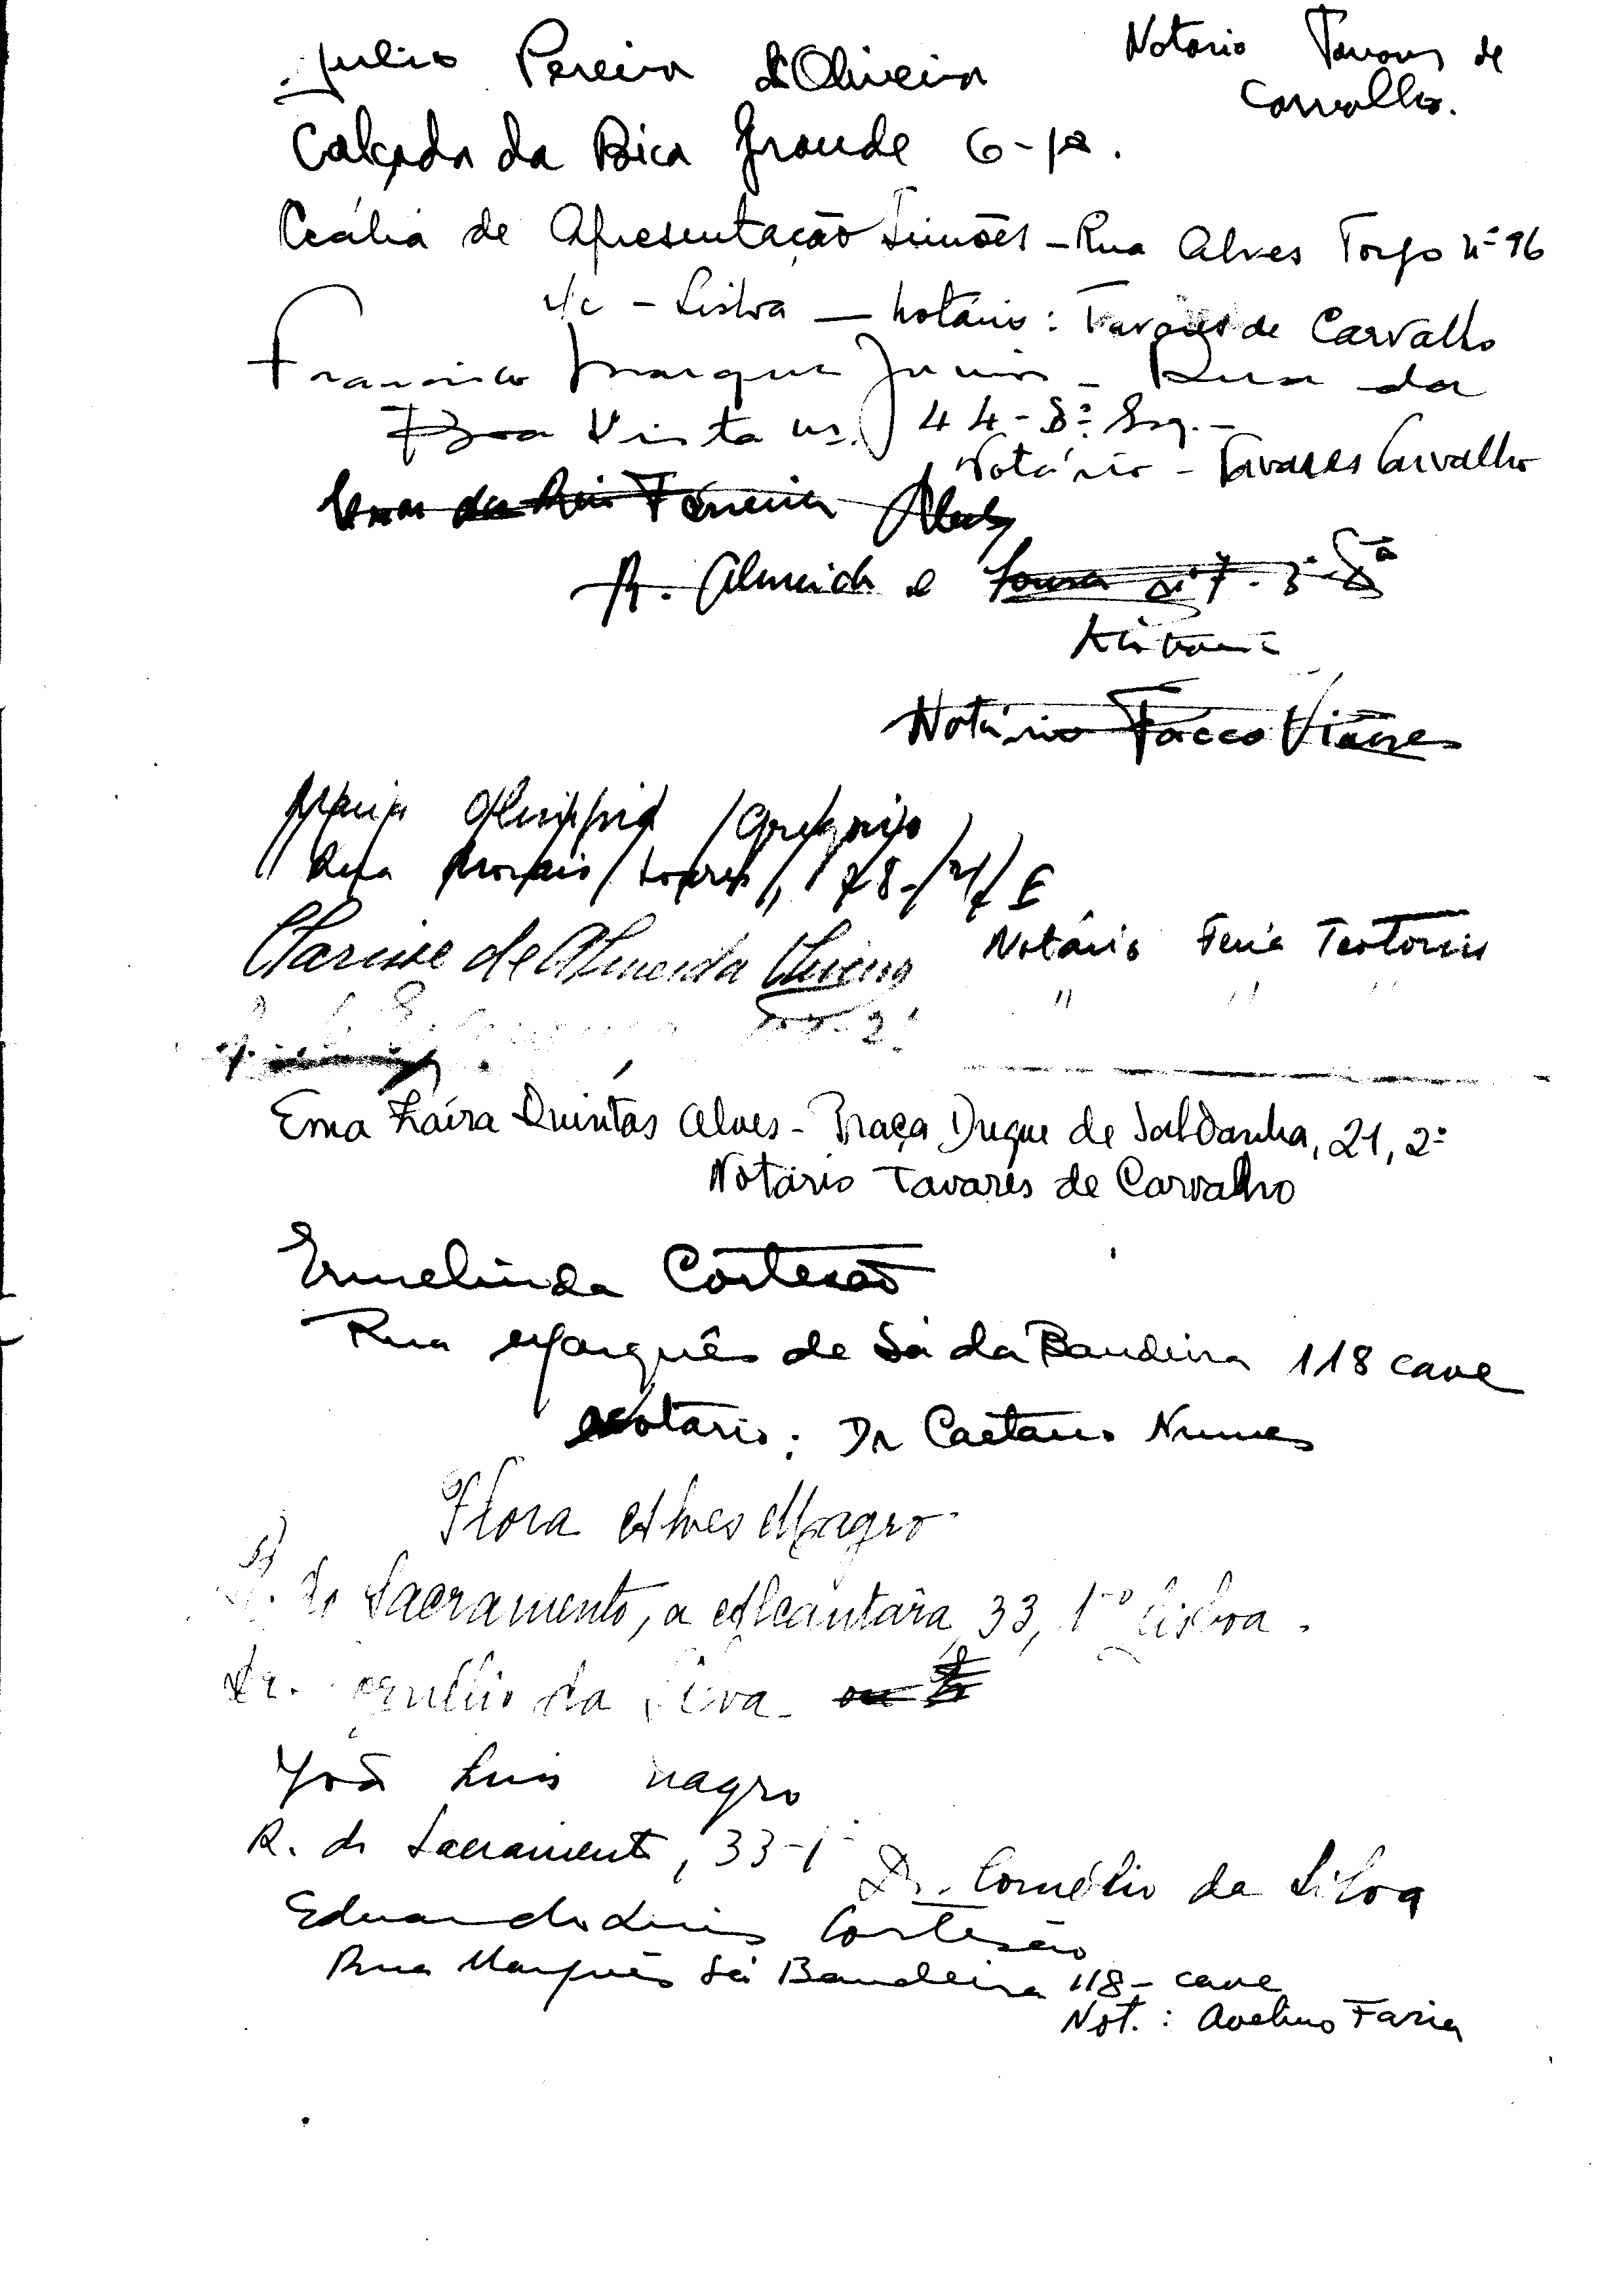 Julio Pereira d'Oliveira
Notario Tavares de
Carvalho.
Calçada da Bica Grande 6-1º.
Cecília de Apresentação Simões - Rua Alves Torgo nº 96
r/c - Lisboa - Notário: Tavares de Carvalho
Francisco Marques Junior - Rua da
Boa Vista nº 44-3º Esq.-
Notário - Tavares Carvalho
Ferreira Alves
R. Almeida e Sousa nº 7-3º
Lisboa
Notário
Maria Olimpia Gregorio
Rua Morais Soares, 78- E
Clarisse de Almeida Oliveira
Notário Feria Teotonio
" " "
Ema Zaíra Quintas Alves - Praça Duque de Saldanha, 21, 2º
Notário Tavares de Carvalho
Ermelinda Cortesão
Rua Marquês de Sá da Bandeira 118 cave
Notário: Dr Caetano Nunes
Flora Alves Magro
R. do Sacramento, a Alcantara, 33, 1º Lisboa.
Dr. Cornélio da Silva
João Luis Magro
R. do Sacramento, 33-1º
Dr. Cornélio da Silva
Eduardo Luis Cortesão
Rua Marquês Sá Bandeira 118-cave
Not.: Avelino Faria